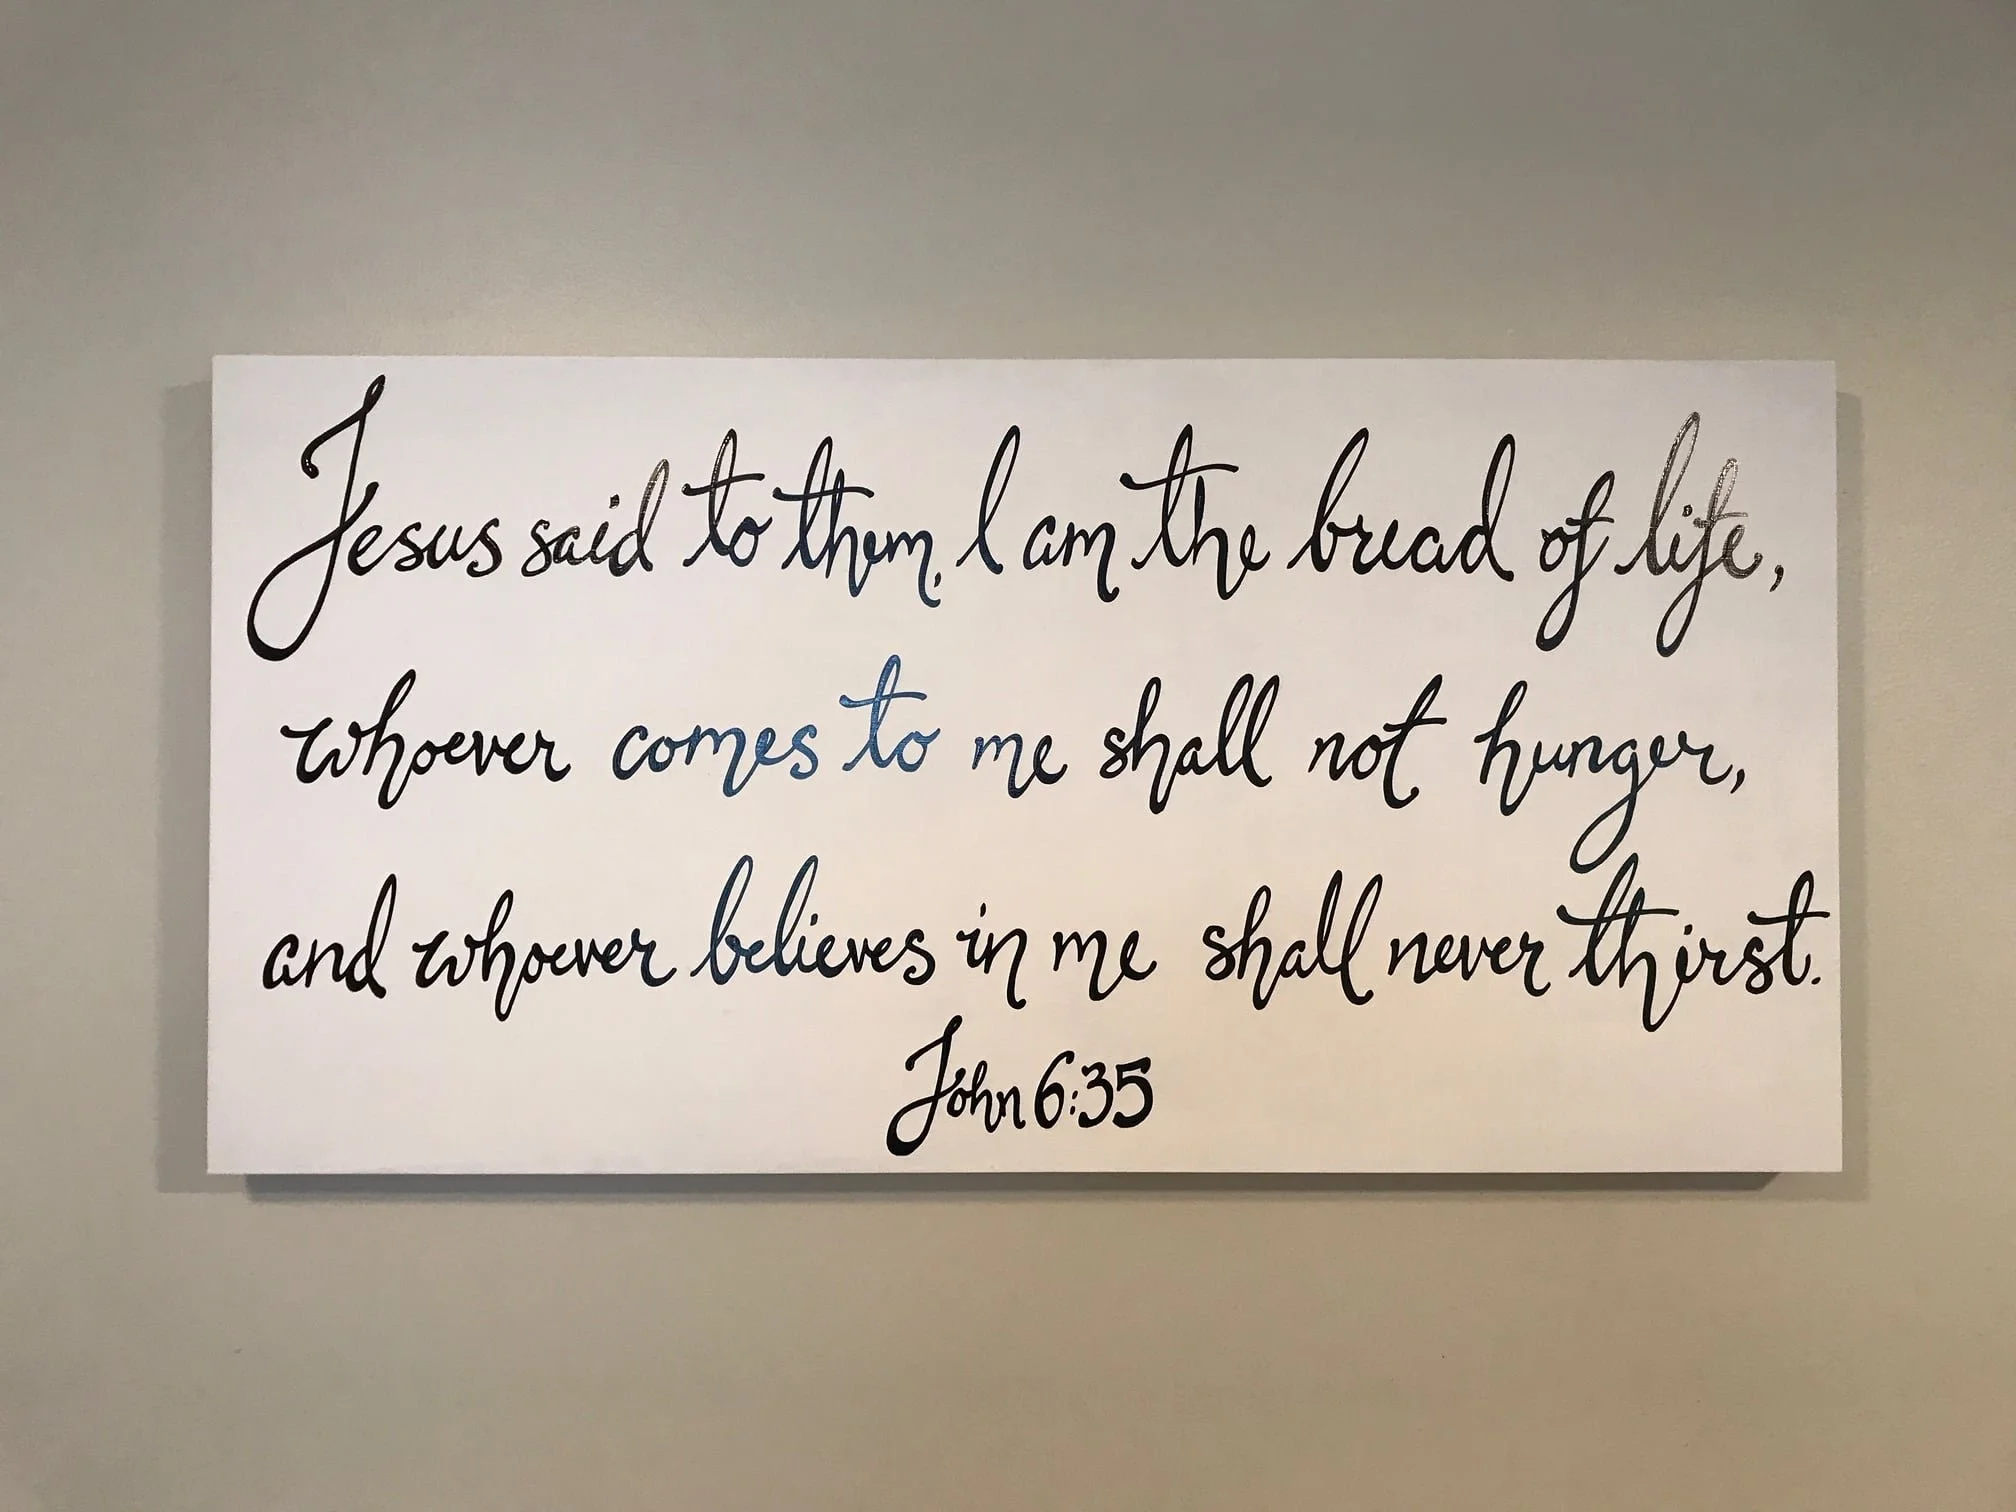 Jesus said to them, I am the bread of life,
whoever comes to me shall not hunger,
and whoever believes in me shall never thirst.
John 6:35